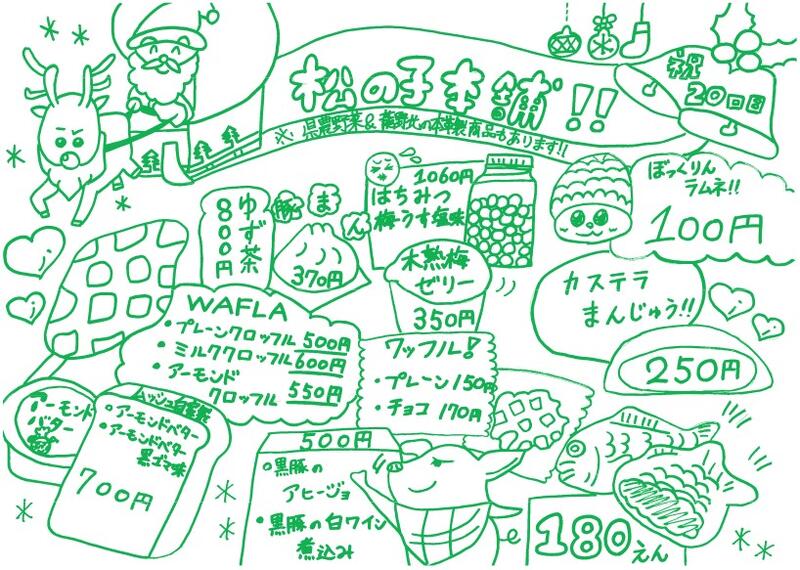 松の子本舗!!
※県農野菜&藤野光の本革製商品もあります!!
祝
20回目
ゆず茶
800円
豚まん
370円
1060円
はちみつ
梅うす塩味
木熟梅
ゼリー
350円
ぼっくりん
ラムネ!!
100円
カステラ
まんじゅう!!
250円
WAFLA
・プレーンクロッフル 500円
・ミルククロッフル 600円
・アーモンド
クロッフル 550円
ワッフル!
・プレーン 150円
・チョコ 170円
アーモンド
バター
ムッシュ自家製
・アーモンドベター
・アーモンドベター
黒ゴマ味
700円
500円
・黒豚の
アヒージョ
・黒豚の白ワイン
煮込み
180えん